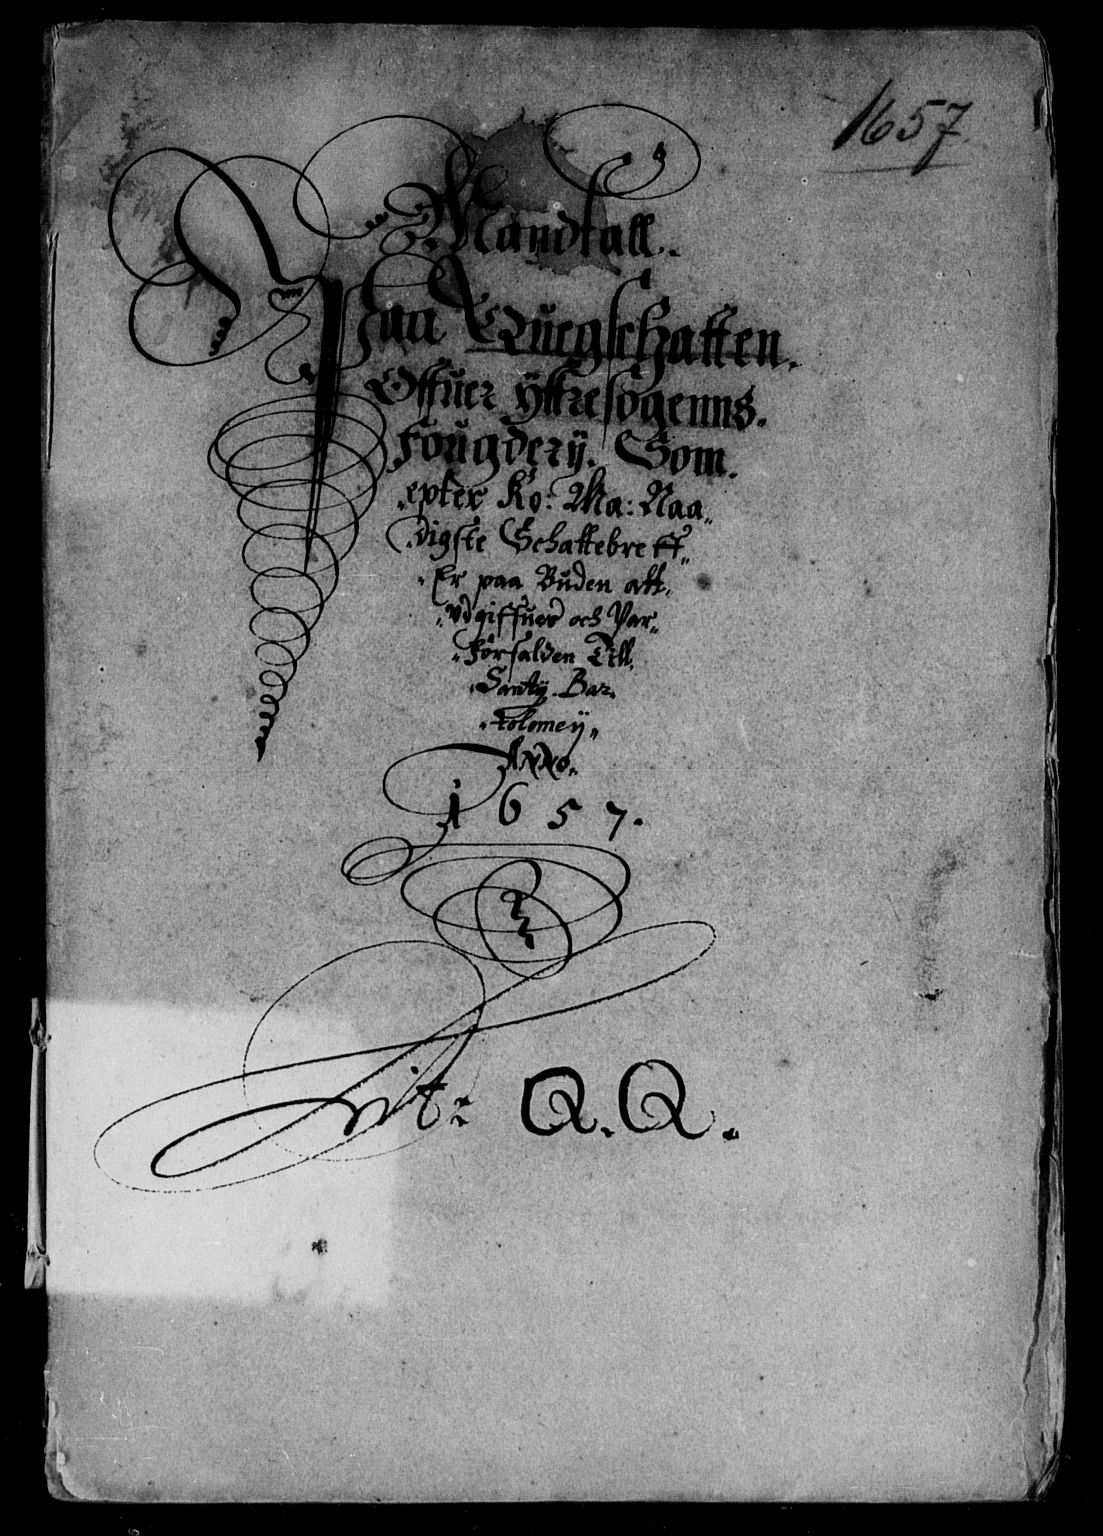 1657
Mandtall.
Paa Quegschatten.
Offuer ÿttresögenns.
fougderÿ. Som.
epter Ko: Ma: Naa„
digste Schattebreff„
Er paa Buden att„
vdgiffues och Var„
forfalden Till„
Santÿ Bar„
tolomeÿ„
Anno„
1657.
Lit: Q.Q.